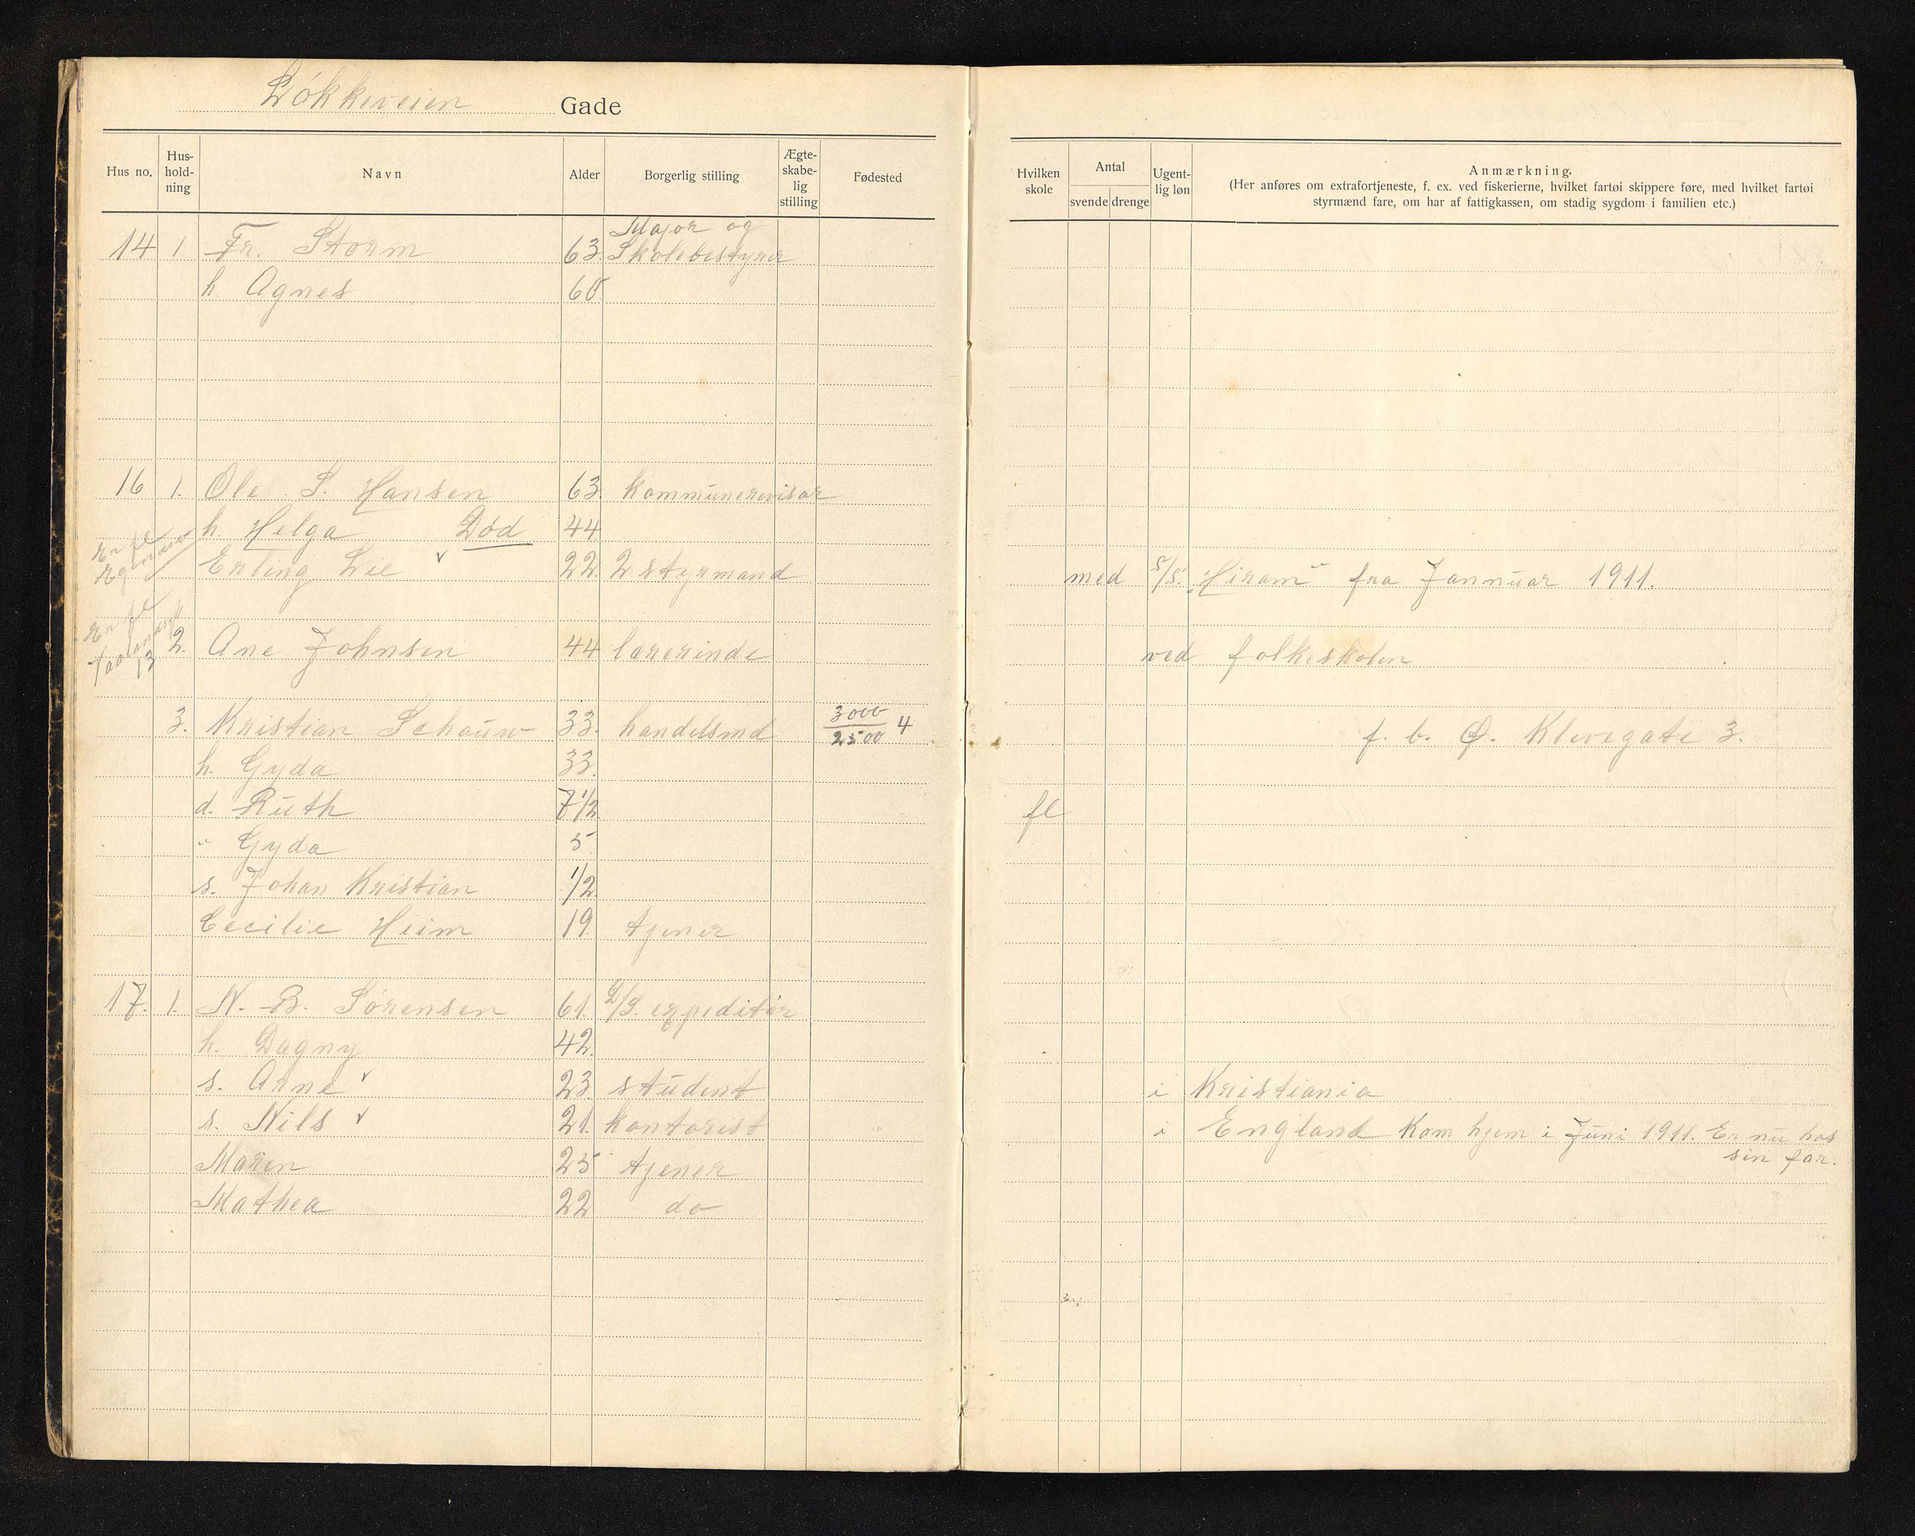 Løkkeveien Gade
Hus no. Hus-hold-ning Navn Alder Borgerlig stilling Ægte-skabe-lig stilling Fødested
14 1 Fr. Storm 63. Major og Skolebestyrer
h. Agnes 60
16 1. Ole S. Hansen 63. kommunerevisor
h. Helga Død 44
Er fl
Erling Lie v 22. 2 styrmand
Er fl
2. Ane Johnsen 44 lærerinde
13
3. Kristian Schouw 33. handelsmd 3000/2500 4
h. Gyda 33.
d. Ruth 7 1/2
" Gyda 5
s. Johan Kristian 1/2
Cecilie Hiim 19. tjener
17. 1. N. B. Sørensen 61. D/S. expeditør
h. Dagny 42.
s. Arne v 23. student
s. Nils v 21. kontorist
Maren 25 tjener
Mathea 22 do
Hvilken skole Antal svende drenge Ugent-lig løn Anmærkning.
(Her anføres om extrafortjeneste, f. ex. ved fiskerierne, hvilket fartøi skippere føre, med hvilket fartøi
styrmænd fare, om har af fattigkassen, om stadig sygdom i familien etc.)
med s/s. "Hiram" fra Januar 1911.
ved folkeskolen
f. b. Ø. Klevegate 3.
fl
i Kristiania
i England Kom hjem i Juni 1911. Er nu hos
sin far.